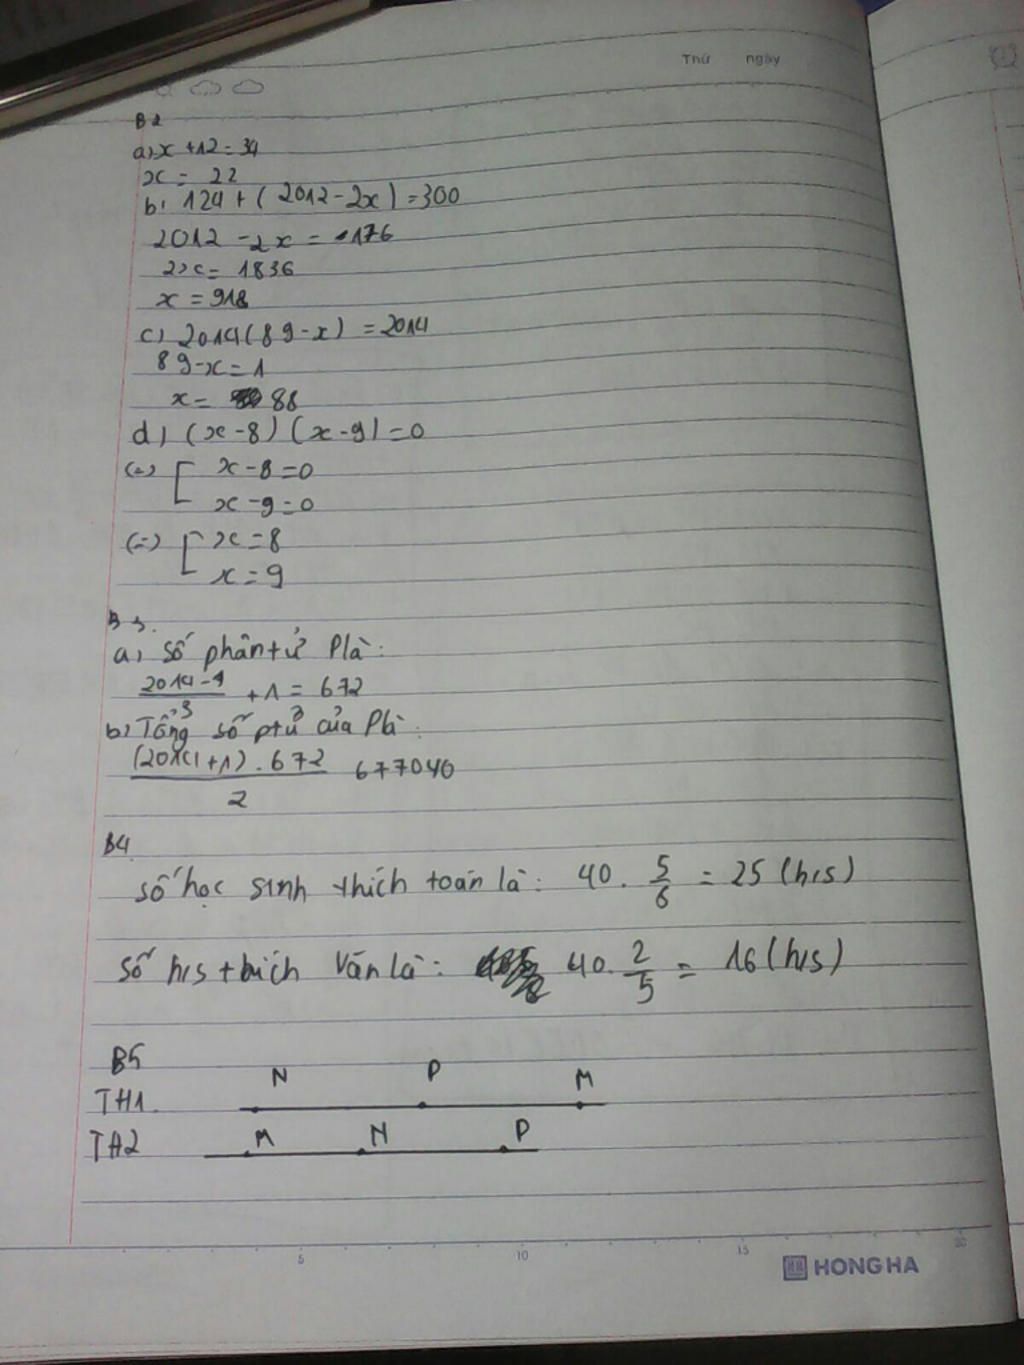 Thứ ngày
B2
a) x + 12 = 34
x = 22
b) 124 + ( 2012 - 2x ) = 300
2012 - 2x = 176
2x = 1836
x = 918
c) 2014 ( 89 - x ) = 2014
89 - x = 1
x = 88
d) (x - 8) (x - 9) = 0
(=) [ x - 8 = 0
x - 9 = 0
(=) [ x = 8
x = 9
B3.
a, Số phần tử P là:
2014 - 1
/ 3 + 1 = 672
b) Tổng số ptử của P là:
(2014 + 1) . 672 / 2 677040
B4
Số học sinh thích toán là: 40 . 5/8 = 25 (h/s)
Số h/s thích Văn là: 40 . 2/5 = 16 (h/s)
B5
N P M
TH1.
TH2 M N P
5 10 15 20
HONG HA